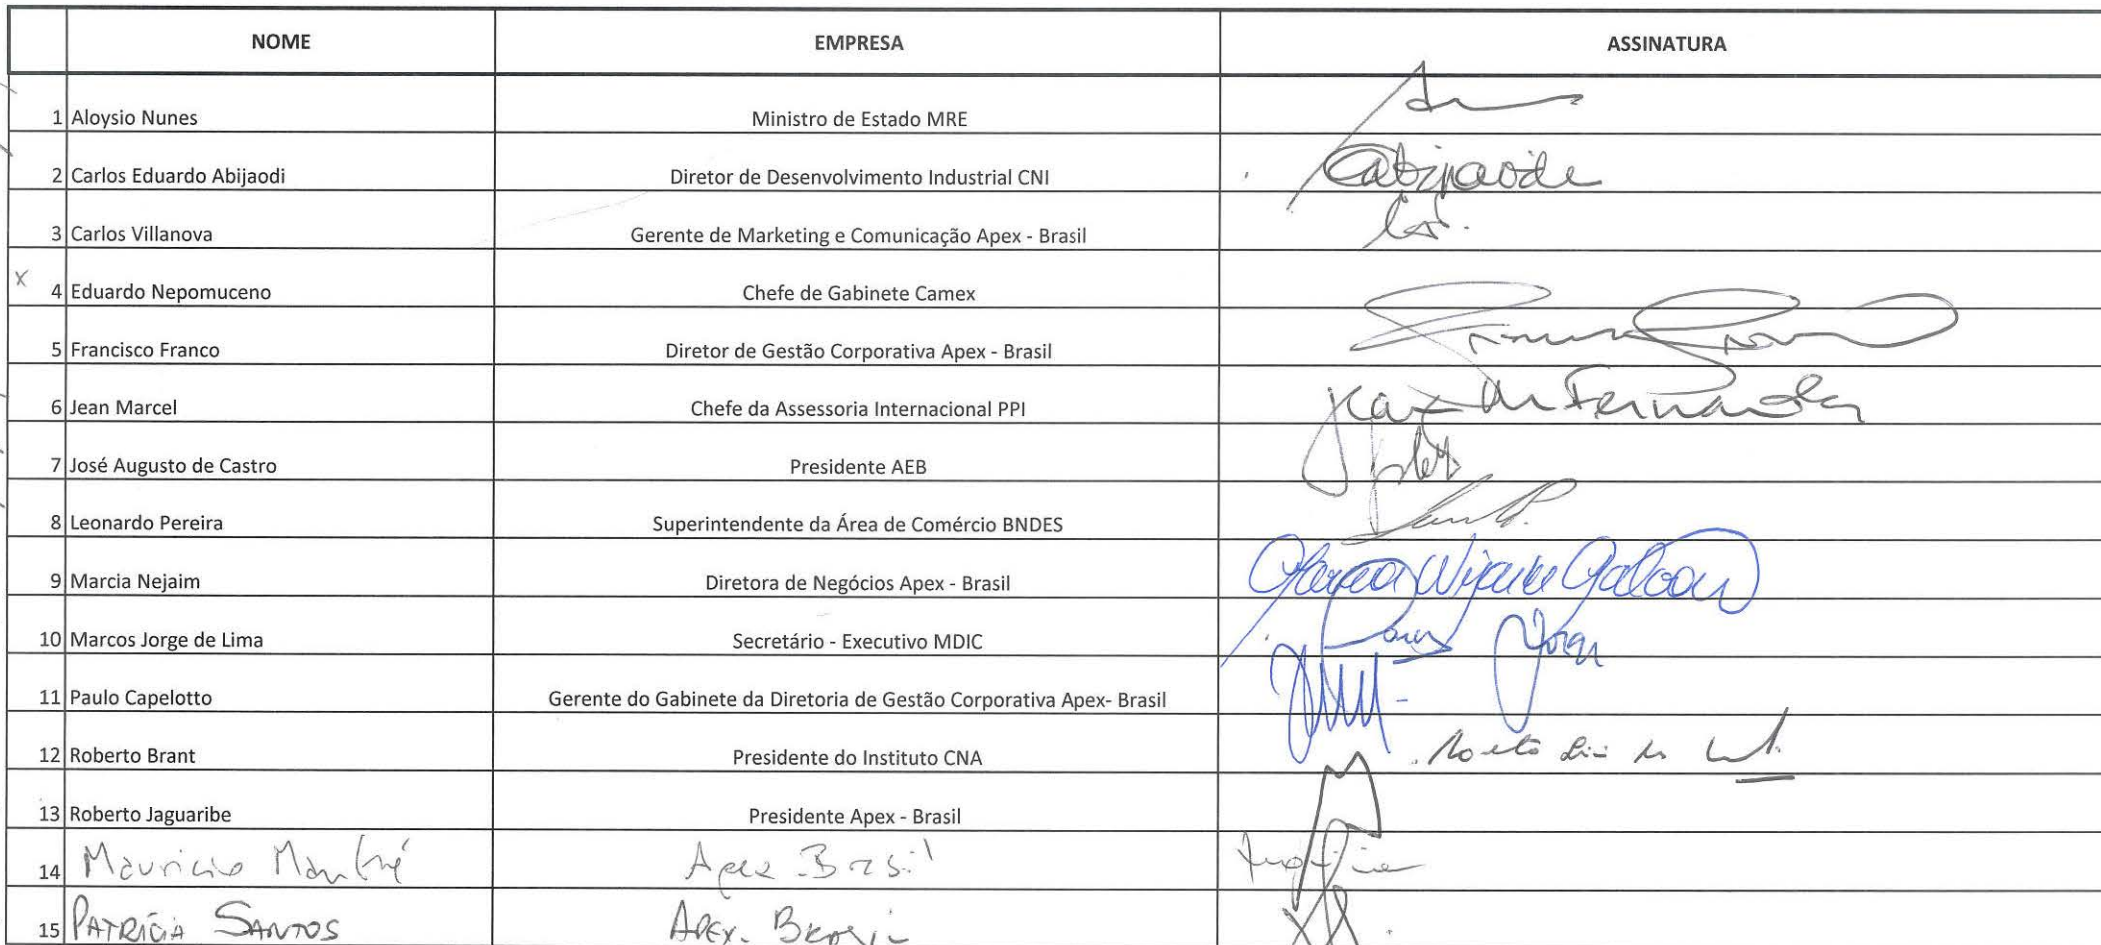 NOME EMPRESA ASSINATURA
1 Aloysio Nunes Ministro de Estado MRE
2 Carlos Eduardo Abijaodi Diretor de Desenvolvimento Industrial CNI
3 Carlos Villanova Gerente de Marketing e Comunicação Apex - Brasil
x 4 Eduardo Nepomuceno Chefe de Gabinete Camex
5 Francisco Franco Diretor de Gestão Corporativa Apex - Brasil
6 Jean Marcel Chefe da Assessoria Internacional PPI
7 José Augusto de Castro Presidente AEB
8 Leonardo Pereira Superintendente da Área de Comércio BNDES
9 Marcia Nejaim Diretora de Negócios Apex - Brasil
10 Marcos Jorge de Lima Secretário - Executivo MDIC
11 Paulo Capelotto Gerente do Gabinete da Diretoria de Gestão Corporativa Apex- Brasil
12 Roberto Brant Presidente do Instituto CNA
13 Roberto Jaguaribe Presidente Apex - Brasil
14 Mauricio Apex Brasil
15 PATRÍCIA SANTOS APEX- BRASIL